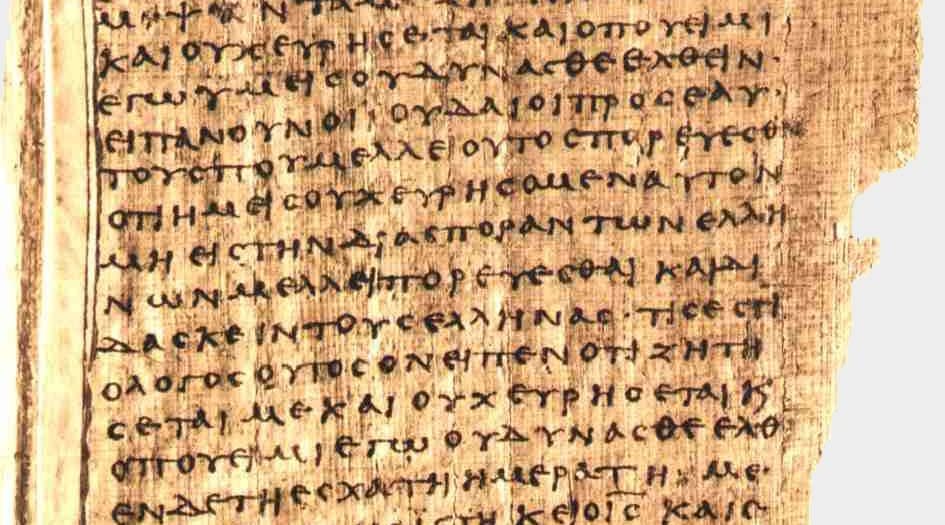 ΜΨΑΝΤΑ
ΚΑΙΟΥΧΕΥΡΗϹΕΤΑΙΚΑΙΟΠΟΥΕΙΜΙ
ΕΓΩΥΜΕΙϹΟΥΔΥΝΑϹΘΕΕΛΘΕΙΝ·
ΕΙΠΑΝΟΥΝΟΙΙΟΥΔΑΙΟΙΠΡΟϹΕΑΥ·
ΤΟΥϹΠΟΥΜΕΛΛΕΙΟΥΤΟϹΠΟΡΕΥΕϹΘ
ΟΤΙΗΜΕΙϹΟΥΧΕΥΡΗϹΟΜΕΝΑΥΤΟΝ
ΜΗΕΙϹΤΗΝΔΙΑϹΠΟΡΑΝΤΩΝΕΛΛΗ
ΝΩΝΜΕΛΛΕΙΠΟΡΕΥΕϹΘΑΙΚΑΙΔΙ
ΔΑϹΚΕΙΝΤΟΥϹΕΛΛΗΝΑϹ·ΤΙϹΕϹΤΙ
ΟΛΟΓΟϹΟΥΤΟϹΟΝΕΙΠΕΝΟΤΙΖΗΤΗ
ϹΕΤΑΙΜΕΚΑΙΟΥΧΕΥΡΗϹΕΤΑΙΚ
ΟΠΟΥΕΙΜΙΕΓΩΟΥΔΥΝΑϹΘΕΕΛΘ
ΕΝΔΕΤΗΕϹΧΑΤΗΗΜΕΡΑΤΗΜΕ·
ΙϹΤΗΚΕΙΟΙ̅Ϲ̅ΚΑΙ